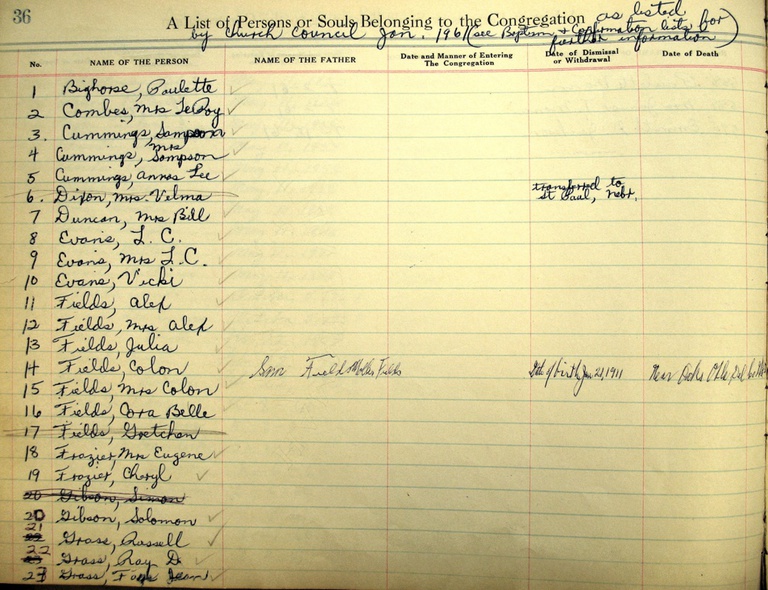 36
A List of Persons or Souls Belonging to the Congregation as listed
by Church Council Jan. 1961 (see Baptism & Confirmation lists for
further information)
No. NAME OF THE PERSON NAME OF THE FATHER Date and Manner of Entering The Congregation Date of Dismissal or Withdrawal Date of Death
1 Bighorse, Paulette ✓
2 Combes, Mrs LeRoy ✓
3. Cummings, Sampson ✓
4 Cummings, Mrs Sampson ✓
5 Cummings, Annas Lee ✓
6. Dixon, Mrs. Velma transferred to St Paul, Nebr.
7 Duncan, Mrs Bill
8 Evans, L. C. ✓
9 Evans, Mrs L. C. ✓
10 Evans, Vicki ✓
11 Fields, Alex ✓
12 Fields, Mrs Alex ✓
13 Fields, Julia ✓
14 Fields, Colon ✓ Sam Field & Mollie Fields Date of birth Jan 21, 1911 Near Oaks Okla
15 Fields, Mrs Colon ✓
16 Fields, Cora Belle ✓
17 Fields, Gretchen
18 Frazier, Mrs Eugene ✓
19 Frazier, Cheryl ✓
20 Gibson, Simon
20 Gibson, Solomon ✓
21 Grass, Russell ✓
22 Grass, Ray D. ✓
23 Grass, Jean ✓